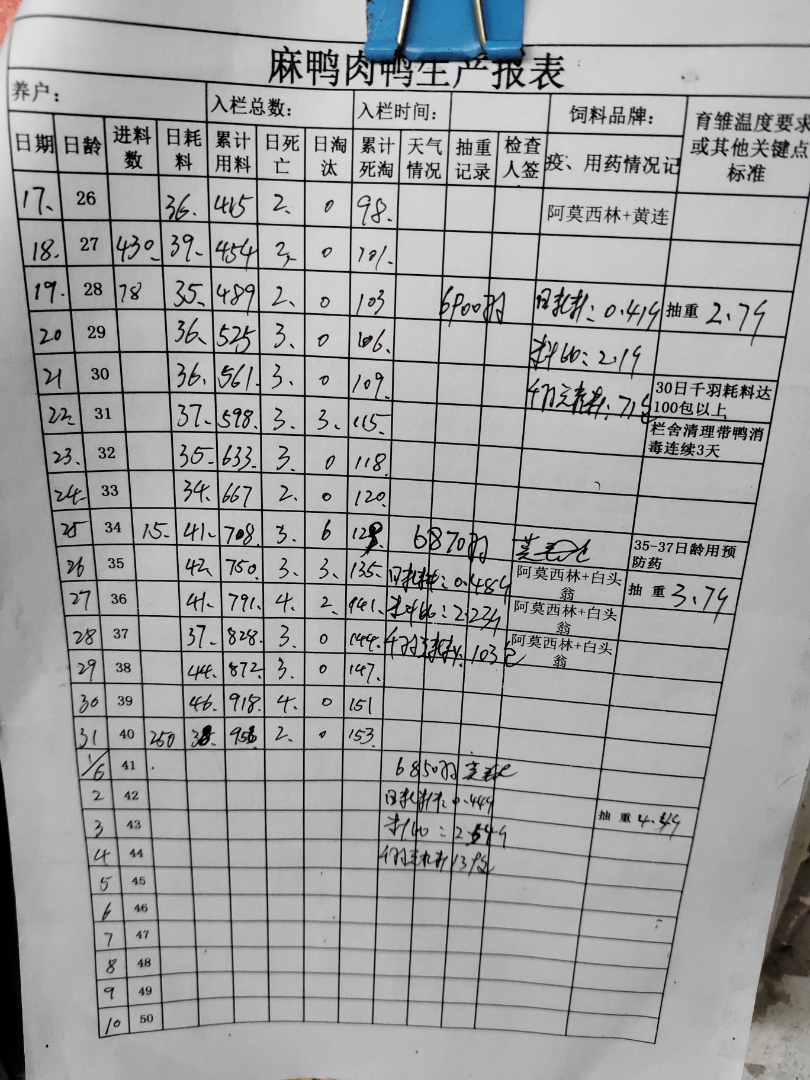 麻鸭肉鸭生产报表
养户: 入栏总数: 入栏时间: 饲料品牌: 育雏温度要求或其他关键点标准
日期 日龄 进料数 日耗料 累计用料 日死亡 日淘汰 累计死淘 天气情况 抽重记录 检查人签 疫、用药情况记
17. 26 36. 415 2. 0 98. 阿莫西林+黄连
18. 27 430. 39. 454 2. 0 101.
19. 28 78 35. 489 2. 0 103 6900羽 日耗料: 0.419 抽重 2.79
20 29 36. 525 3. 0 106. 料比: 2.19
21 30 36. 561. 3. 0 109. 30日千羽耗料达100包以上
22. 31 37. 598. 3. 3. 115. 栏舍清理带鸭消毒连续3天
23. 32 35. 633. 3. 0 118.
24. 33 34. 667 2. 0 120.
25 34 15. 41. 708. 3. 6 6870羽 35-37日龄用预防药
26 35 42. 750. 3. 3. 135. 日耗料: 0.489 阿莫西林+白头翁 抽重 3.79
27 36 41. 791. 4. 2. 141. 料比: 2.239 阿莫西林+白头翁
28 37 37. 828. 3. 0 144. 103包 阿莫西林+白头翁
29 38 44. 872. 3. 0 147.
30 39 46. 918. 4. 0 151
31 40 250 38. 956. 2. 0 153.
1/6 41 6850羽
2 42 日耗料: 0.449
3 43 料比: 2.549 抽重 4.49
4 44
5 45
6 46
7 47
8 48
9 49
10 50